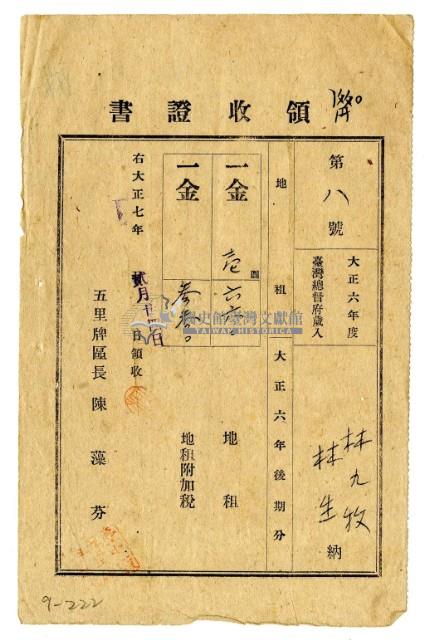 領收證書
第八號
大正六年度
臺灣總督府歲入
林九牧
林生
納
地租
大正六年後期分
一金
壱圓六
地租
一金
地租附加稅
右大正七年貳月十二日領收
五里牌區長 陳藻芬
國史館臺灣文獻館
TAIWAN HISTORICA
9-222